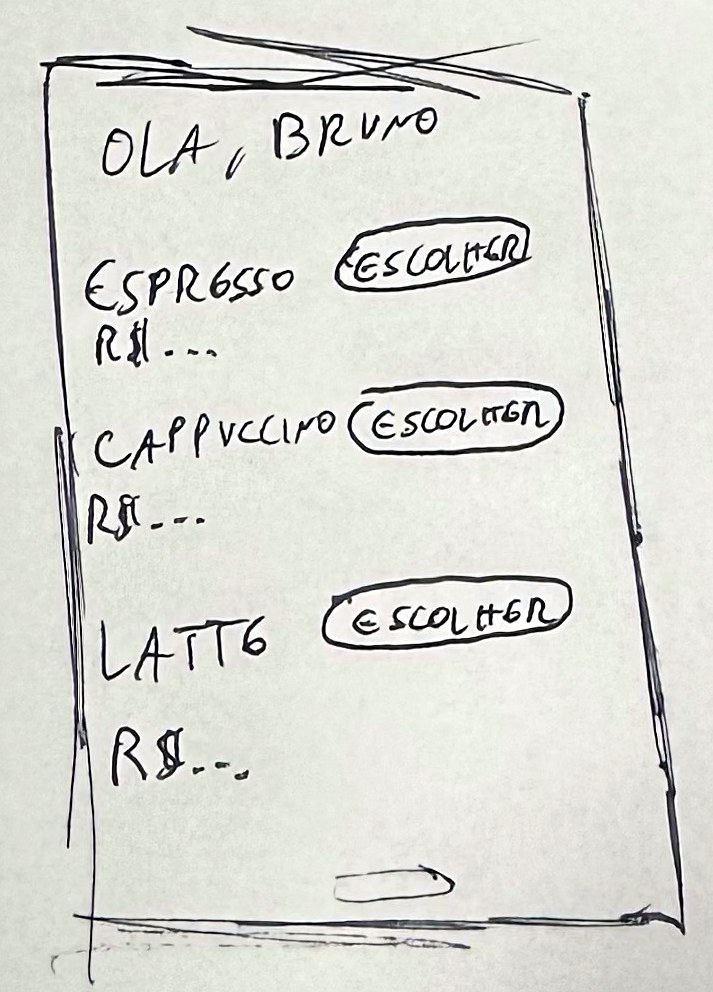 OLA, BRUNO
ESPRESSO ESCOLHER
R$...
CAPPUCCINO ESCOLHER
R$...
LATTE ESCOLHER
R$...